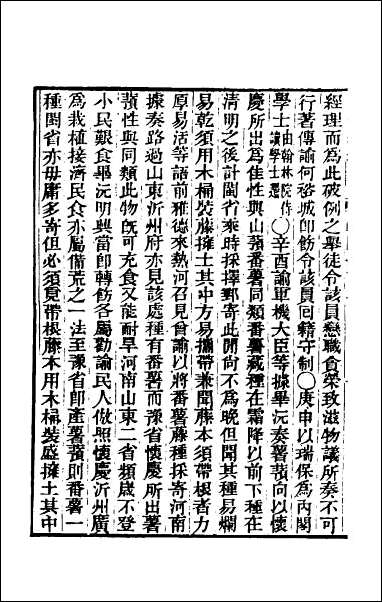 經理而為此破例之舉徒令該員戀職貪榮致滋物議所奏不可
行著傳諭何裕城即飭令該員回籍守制○庚申以瑞保為內閣
學士由翰林院侍讀學士遷○辛酉諭軍機大臣等據畢沅奏薯蕷向以懷
慶所出為佳性與山蕷番薯同類番薯藏種在霜降以前下種在
清明之後計閩省乘時採擇郵寄此間向不為晚但聞其種易爛
易乾須用木桶裝藤擁土其中方易攜帶兼聞藤本須帶根者力
厚易活等語前雅德來熱河召見曾諭以將番薯藤種採寄河南
據奏路過山東沂州府亦見該處種有番薯而豫省懷慶所出薯
蕷性與同類此物既可充食又能耐旱河南山東二省頻歲不登
小民艱食畢沅明興當即轉飭各屬勸諭民人倣照懷慶沂州廣
為栽植接濟民食亦屬備荒之一法至豫省即產薯蕷則番薯一
種閩省亦毋庸多寄但必須覓帶根藤本用木桶裝盛擁土其中